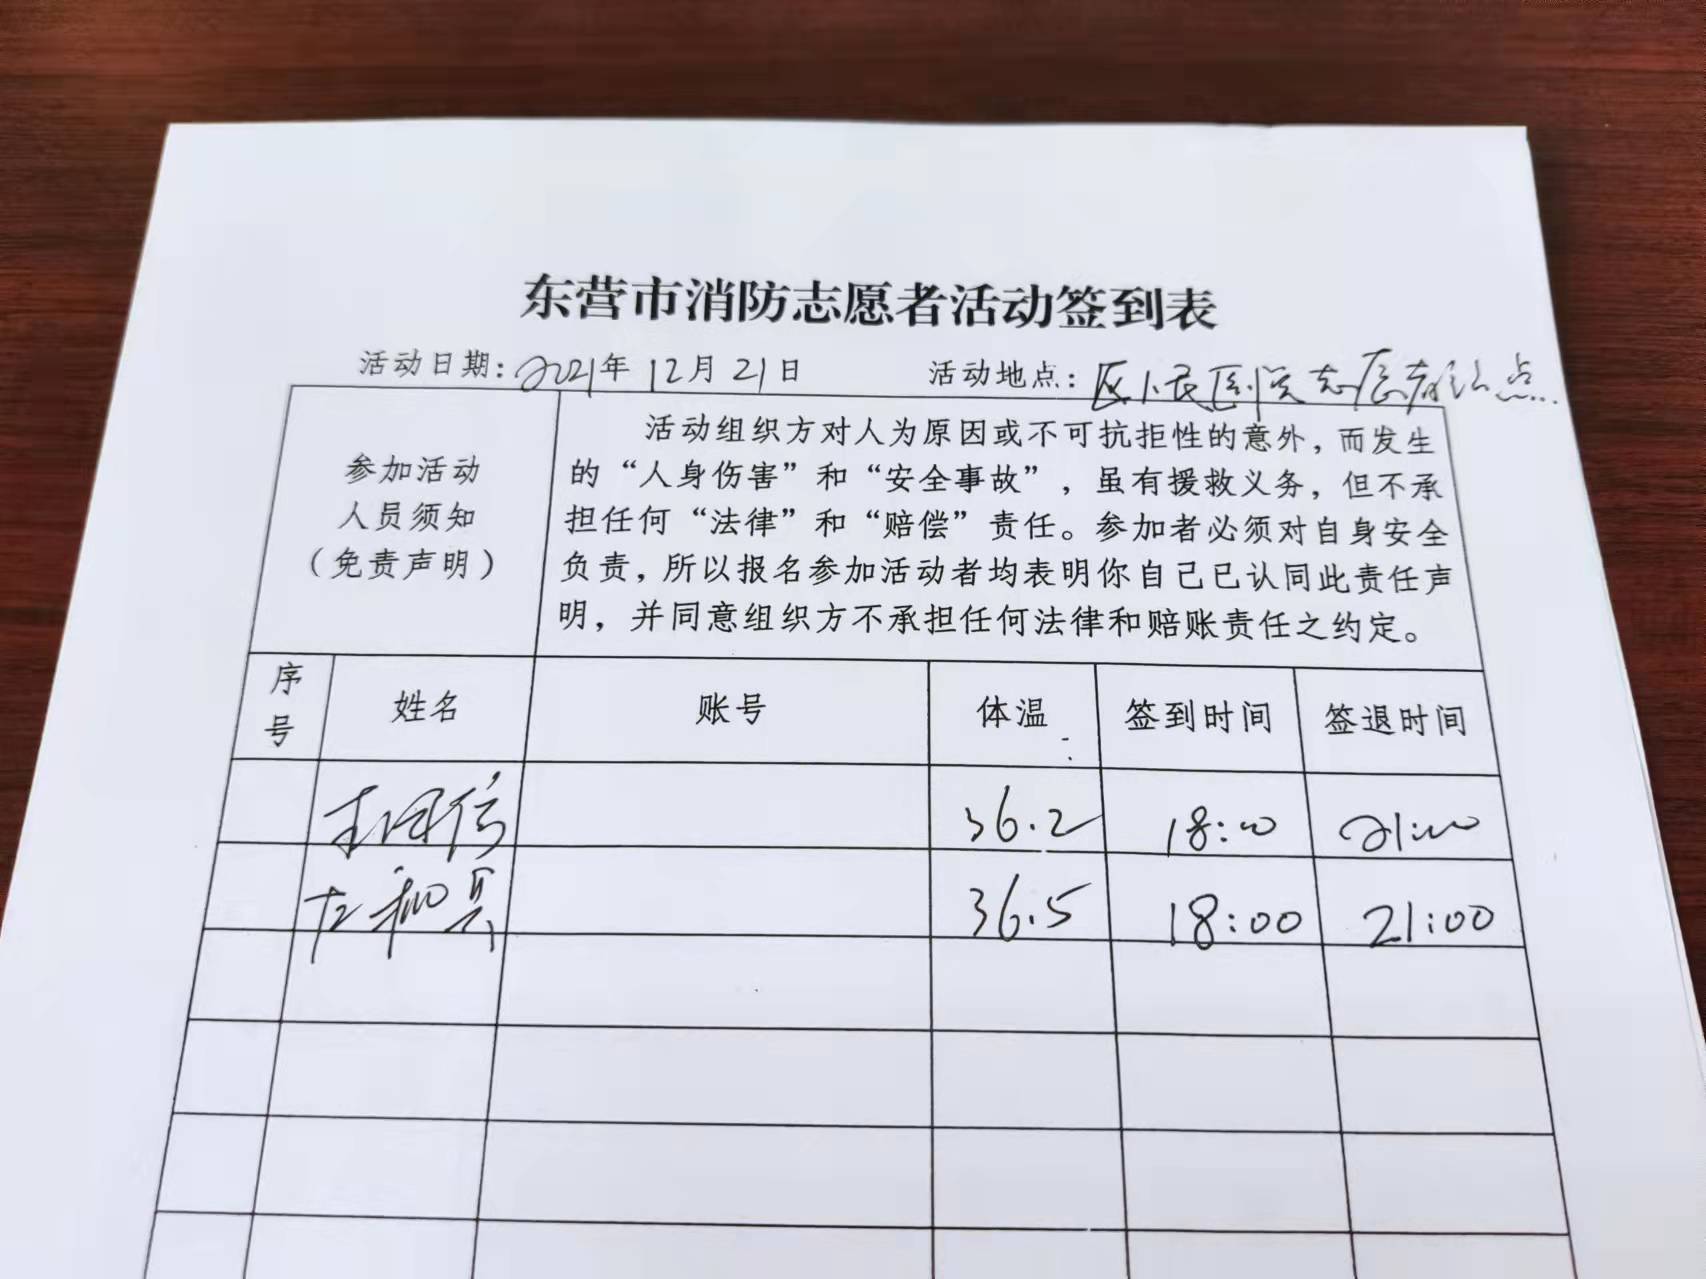 东营市消防志愿者活动签到表
活动日期：2021年12月21日 活动地点：区人民医院志愿者站点
参加活动
人员须知
（免责声明）
活动组织方对人为原因或不可抗拒性的意外，而发生
的“人身伤害”和“安全事故”，虽有援救义务，但不承
担任何“法律”和“赔偿”责任。参加者必须对自身安全
负责，所以报名参加活动者均表明你自己已认同此责任声
明，并同意组织方不承担任何法律和赔账责任之约定。
序号 姓名 账号 体温 签到时间 签退时间
36.2 18:00 21:00
36.5 18:00 21:00